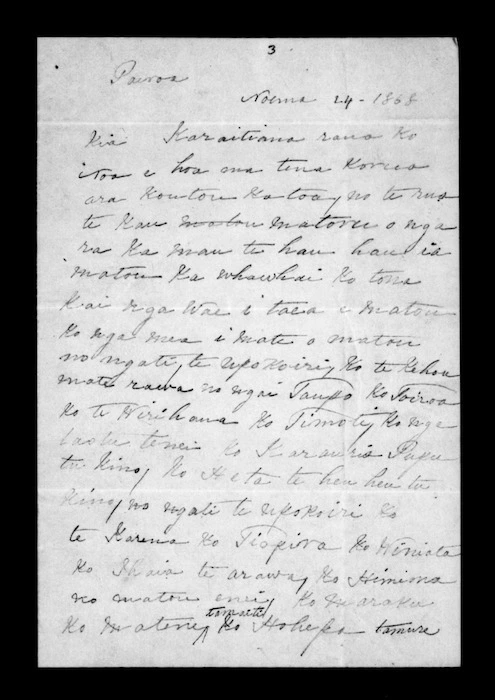 3
Paeroa
Noema 24 - 1868
Kia Karaitiana raua ko
i hoa ma tena Korua
ara Koutou Katoa, no te rua
te Kau matou matoru o nga
ra Ka mau te hau hau ia
matou Ka whawhai Ko tona
Kai nga Wae i taea e matou
Ko nga mea i mate o matou
no ngati te upokoiri, Ko te Kehou
mate rawa no ngai Taupo Ko
Ko te Hirihana Ko Timoti, Ko nga
tenei ko Karauria Pupu
tu Kino, Ko Heta te heu heu tu
Kino, no ngati te upokoiri Ko
te Karena Ko Ko Hiniata
Ko Ihaia te arawa, Ko Himiona
no matou enei, Ko Maraku
tamaiti
Ko Matene, Ko Hohepa tamure